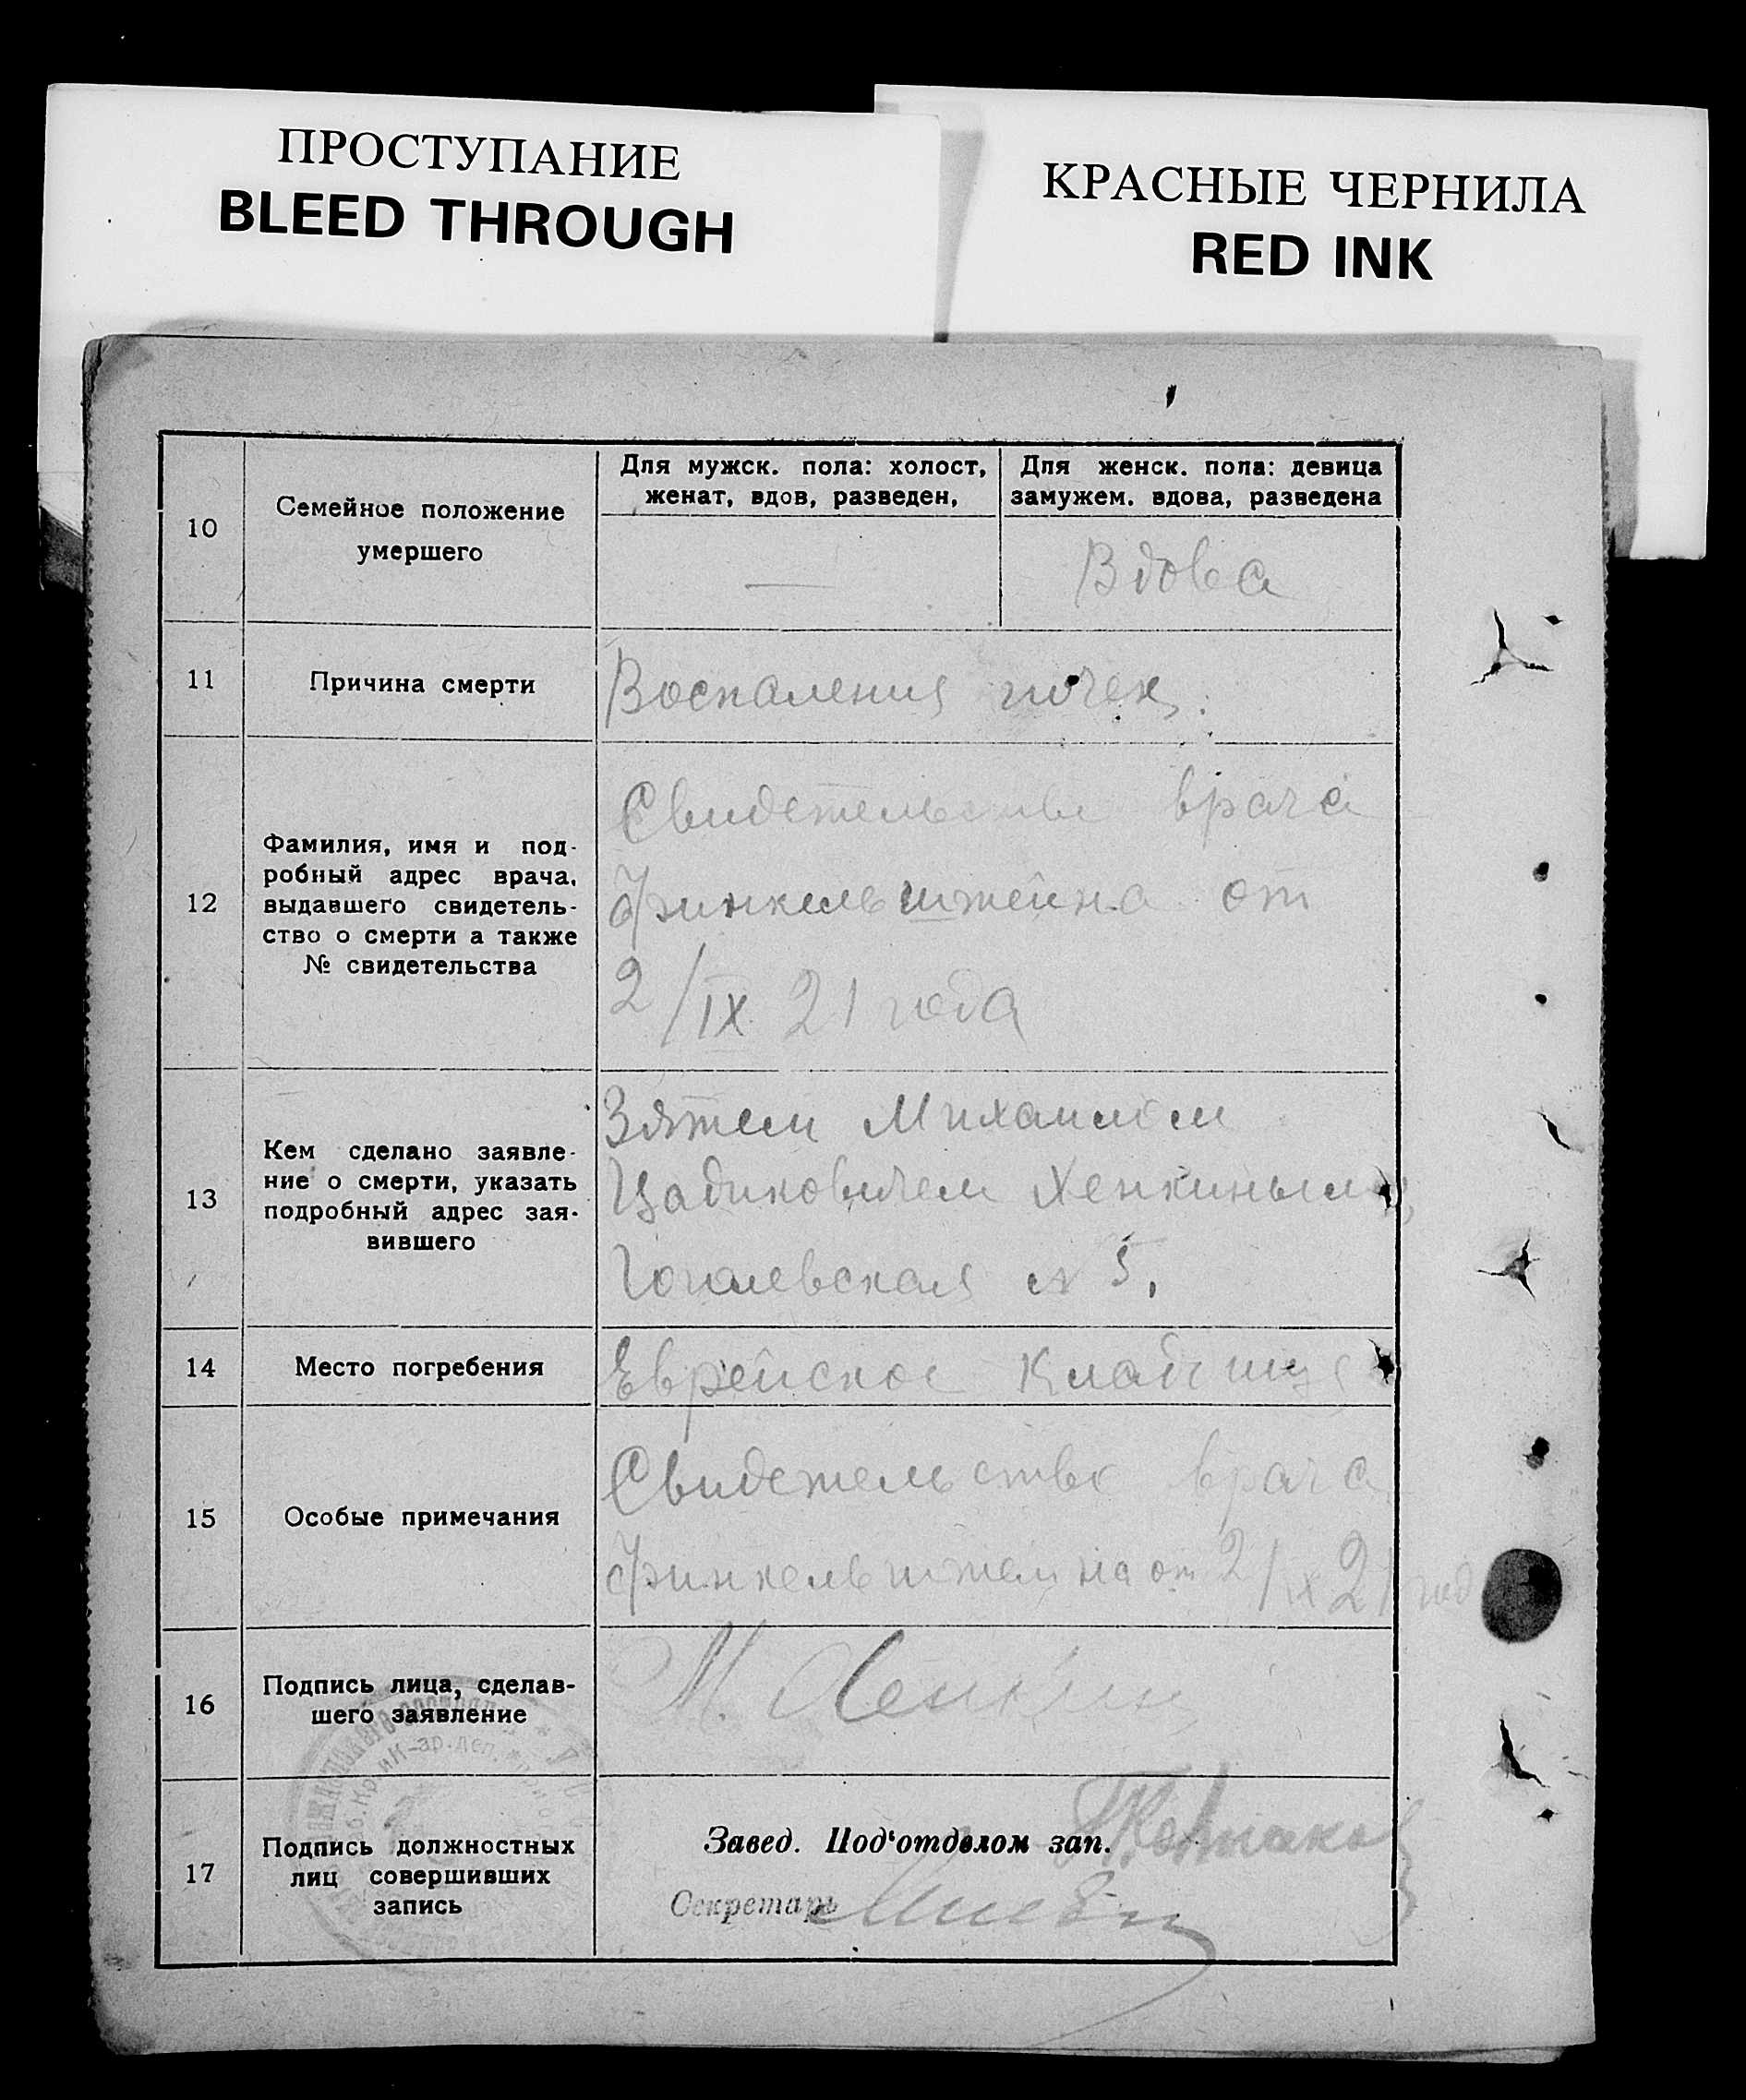 ПРОСТУПАНИЕ
BLEED THROUGH
КРАСНЫЕ ЧЕРНИЛА
RED INK
10
Семейное положение
умершего
Для мужск. пола: холост,
женат, вдов, разведен,
—
Для женск. пола: девица
замужем. вдова, разведена
Вдова
11
Причина смерти
Воспаления почек.
12
Фамилия, имя и под-
робный адрес врача,
выдавшего свидетель-
ство о смерти а также
№ свидетельства
Свидетельство врача
Финкельштейна от
2/IX 21 года
13
Кем сделано заявле-
ние о смерти, указать
подробный адрес зая-
вившего
Зятем Михаилом
Цадиковичем Хенкиным,
Гоголевская № 5.
14
Место погребения
Еврейское Кладбище
15
Особые примечания
Свидетельство врача
Финкельштейна от 2/IX 21 года
16
Подпись лица, сделав-
шего заявление
М. Хенкин
17
Подпись должностных
лиц совершивших
запись
Завед. Под'отделом зап.
Секретарь